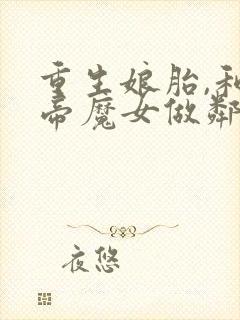 重生娘胎,和
帝魔女做鄰
夜悠